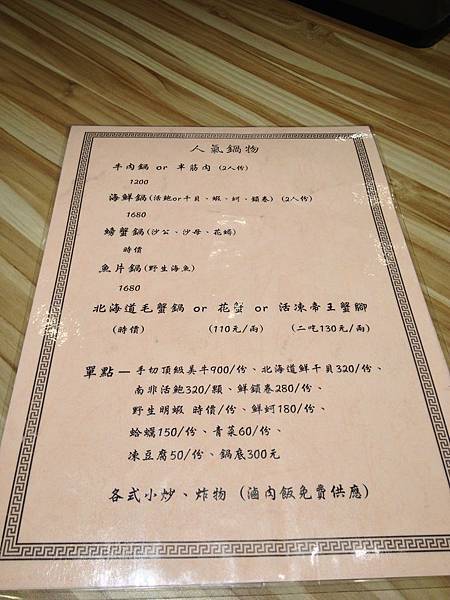 人氣鍋物
牛肉鍋 or 半筋肉 (2人份)
1200
海鮮鍋(活鮑or干貝、蝦、蚵、鎖卷) (2人份)
1680
螃蟹鍋(沙公、沙母、花蟳)
時價
魚片鍋(野生海魚)
1680
北海道毛蟹鍋 or 花蟹 or 活凍帝王蟹腳
(時價) (110元/兩) (二吃130元/兩)
單點—手切頂級美牛900/份、北海道鮮干貝320/份、
南非活鮑320/顆、鮮鎖卷280/份、
野生明蝦 時價/份、鮮蚵180/份、
蛤蠣150/份、青菜60/份、
凍豆腐50/份、鍋底300元
各式小炒、炸物 (滷肉飯免費供應)